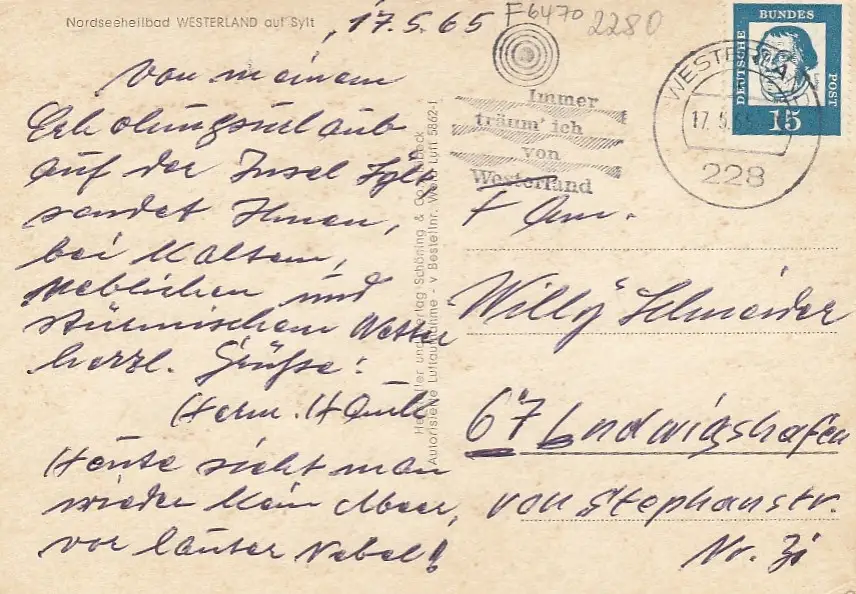 Nordseeheilbad WESTERLAND auf Sylt
17.5.65
F6470
2280
Von meinem
Erholungsurlaub
auf der Insel Sylt
sendet Ihnen,
bei kaltem,
neblichen und
stürmischem Wetter
herzl. Grüße:
Herm.
Heute sieht man
wieder kein Meer,
vor lauter Nebel!
Immer
träum' ich
von
Westerland
WESTERLAND
17.5.65
228
DEUTSCHE
BUNDES
POST
15
Hersteller und Verlag Schöning & Co
Autorisierte Luftaufnahme - v Bestellnr. Weld Luft 5862-1
Fam.
Willy Schneider
67 Ludwigshafen
von Stephanstr.
Nr.